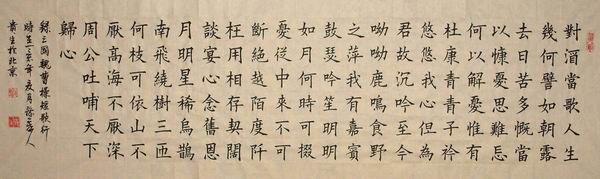 對酒當歌人生
幾何譬如朝露
去日苦多慨當
以慷憂思難忘
何以解憂惟有
杜康青青子衿
悠悠我心但為
君故沉吟至今
呦呦鹿鳴食野
之萍我有嘉賓
鼓瑟吹笙明明
如月何時可掇
憂從中來不可
斷絕越陌度阡
枉用相存契闊
談宴心念舊恩
月明星稀烏鵲
南飛繞樹三匝
何枝可依山不
厭高海不厭深
周公吐哺天下
歸心
錄三國魏曹操短歌行
時在年夏月人
貴生於北京